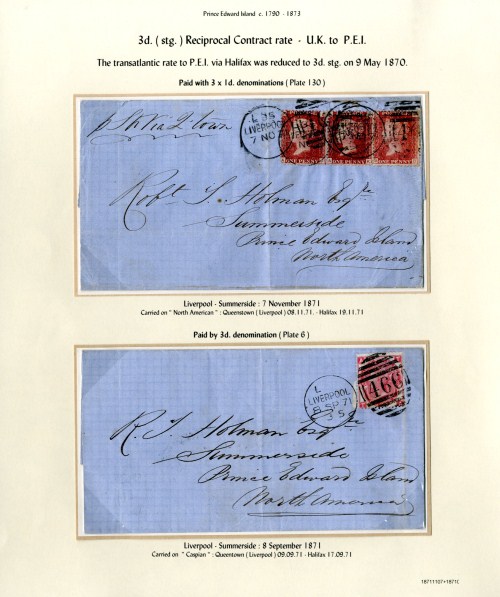 Prince Edward Island c. 1790 - 1873
3d. ( stg. ) Reciprocal Contract rate - U.K. to P.E.I.
The transatlantic rate to P.E.I. via Halifax was reduced to 3d. stg. on 9 May 1870.
Paid with 3 x 1d. denominations ( Plate 130 )
LIVERPOOL
7 NO
ONE PENNY
ONE PENNY
ONE PENNY
Robt. T. Holman Esqre
Summerside
Prince Edward Island
North America
Liverpool - Summerside : 7 November 1871
Carried on " North American " : Queenstown ( Liverpool ) 08.11.71. - Halifax 19.11.71
Paid by 3d. denomination ( Plate 6 )
L
LIVERPOOL
8 SP 71
466
R. T. Holman Esqre
Summerside
Prince Edward Island
North America
Liverpool - Summerside : 8 September 1871
Carried on " Caspian " : Queentown ( Liverpool ) 09.09.71 - Halifax 17.09.71